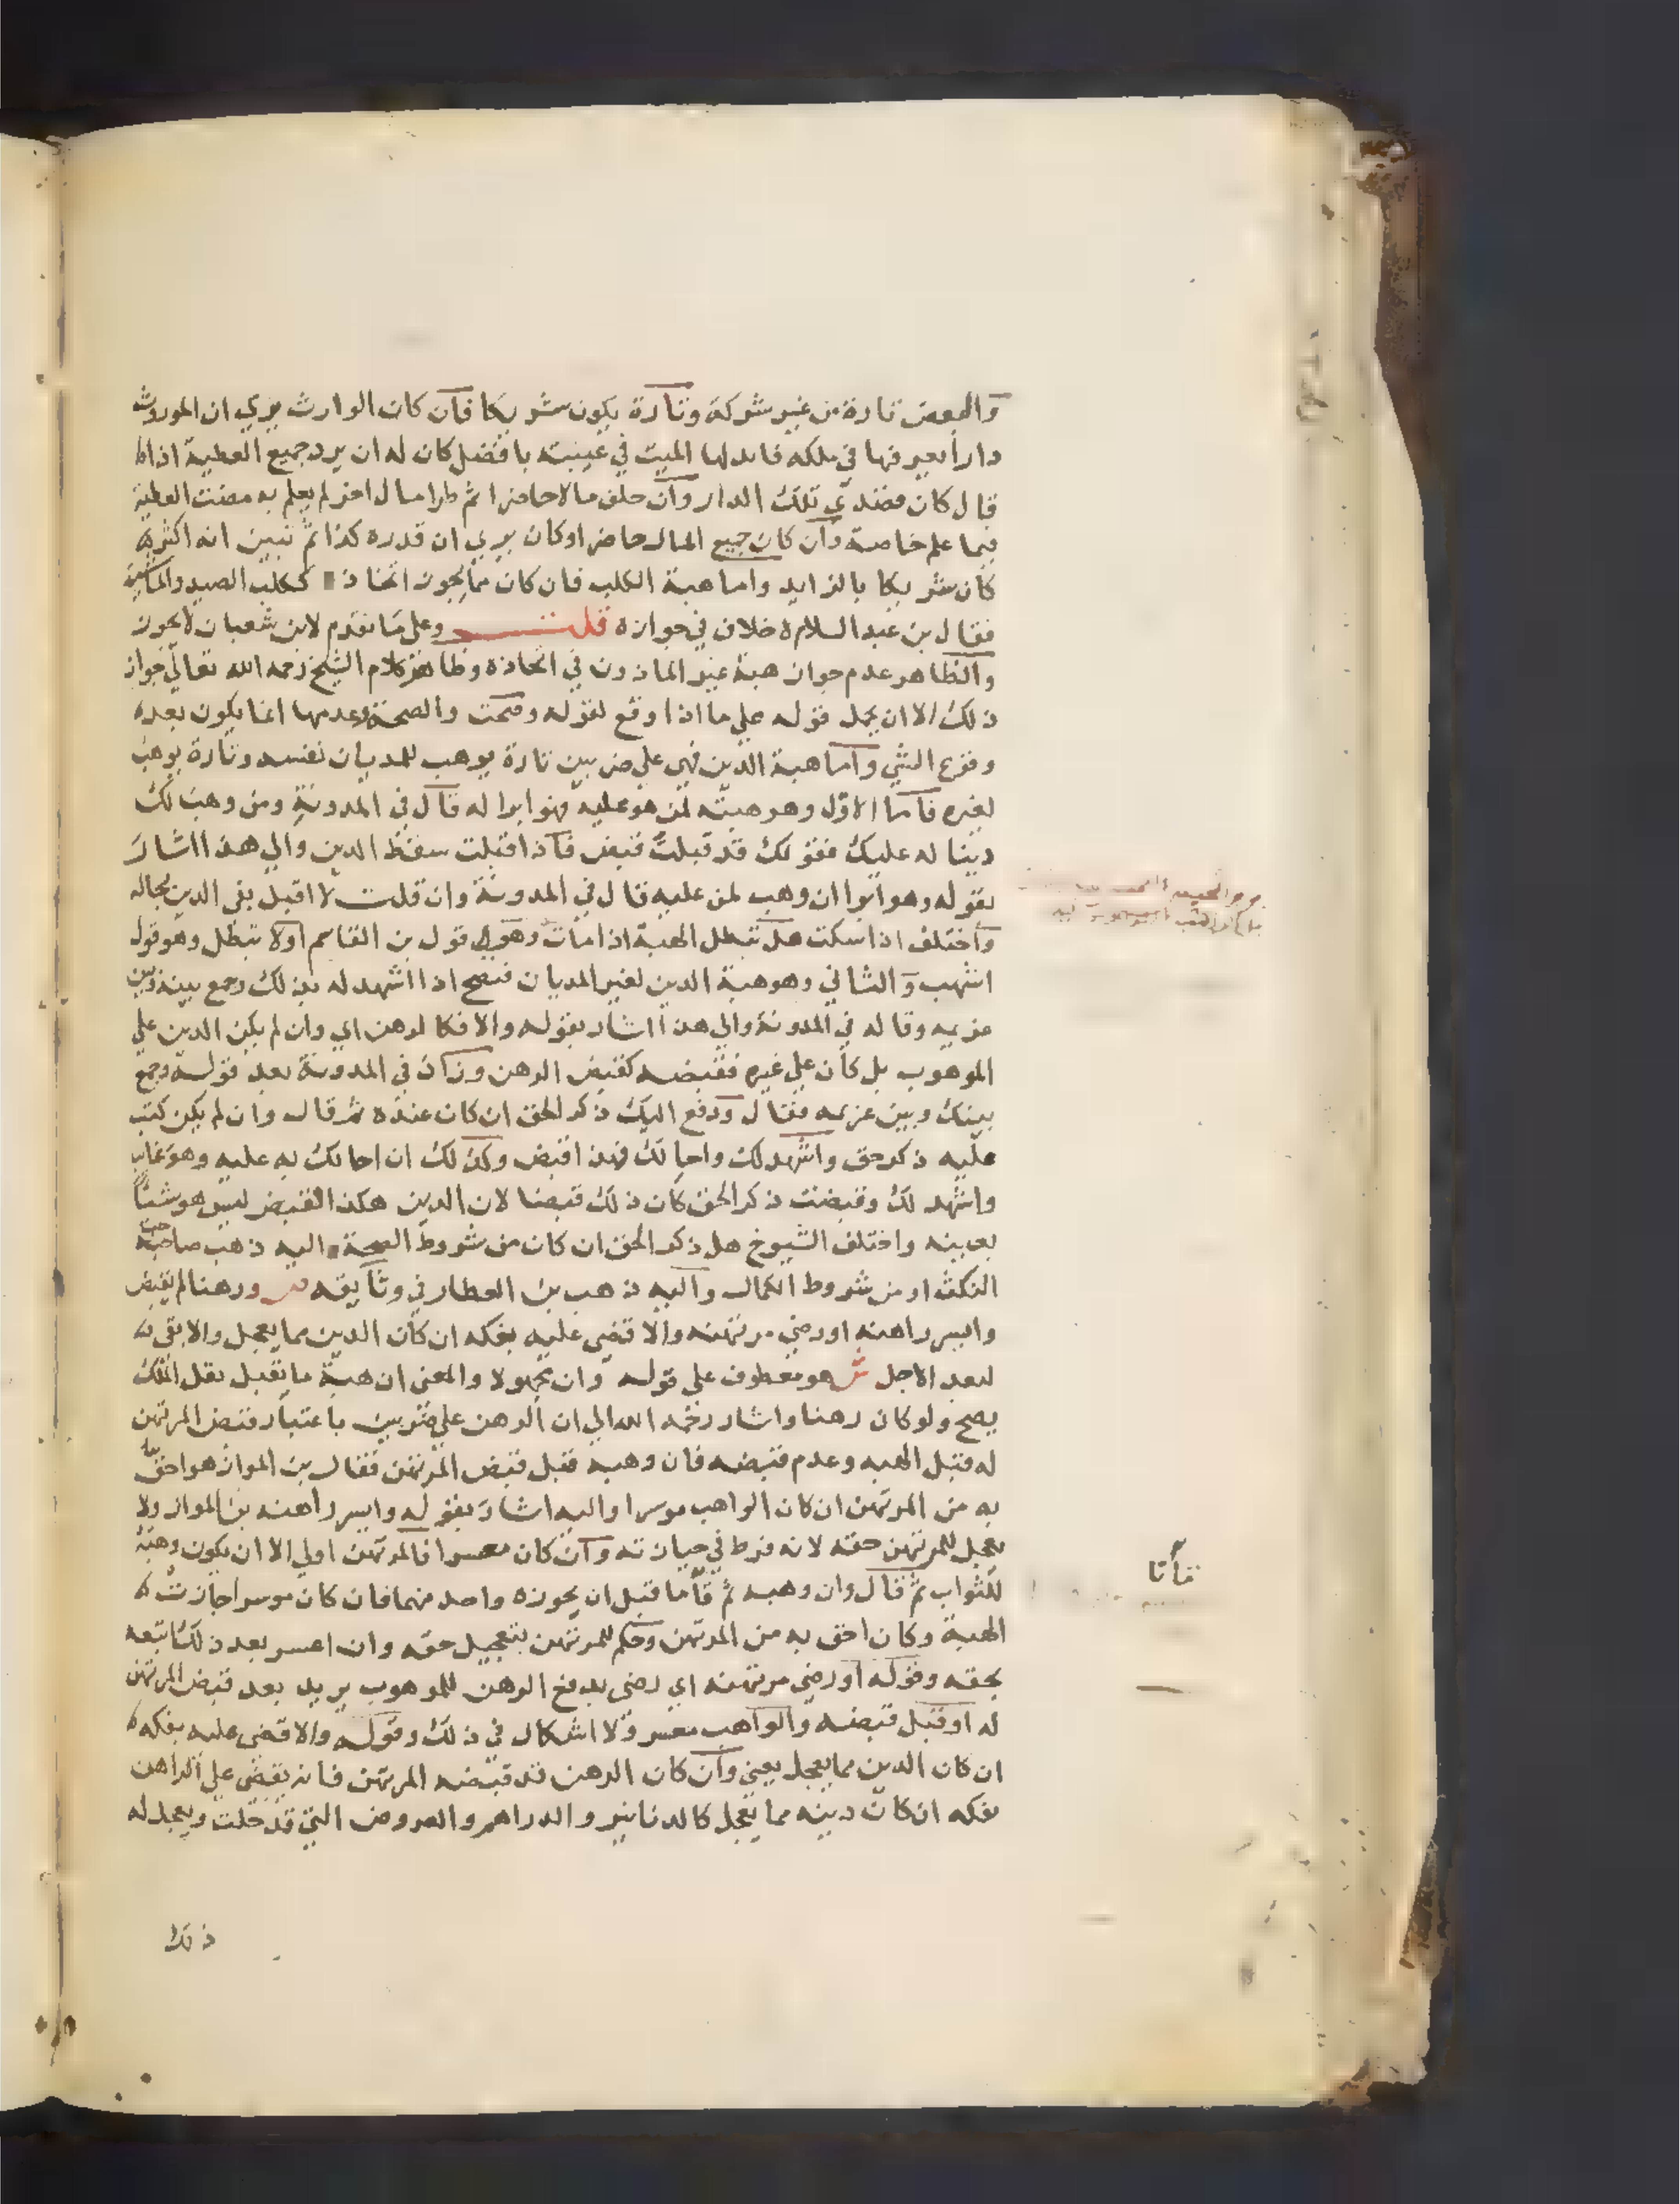 والبعض تارة من غير شركة وتارة يكون شريكا فان كان الوارث يري ان الموروث
دارا يعرفها في ملكه فابدلها الميت في غيبته بافضل كان له ان يرد جميع العطية اذا
قال كان قصدي تلك الدار وان خلف مالا حاضرا ثم طرا مال اخر لم يعلم به مضت العطية
فيما علم خاصة وان كان جميع المال حاضرا وكان يري ان قدره كذا ثم تبين انه اكثر
كان شريكا بالزايد واما هبة الكلب فان كان مما يجوز اتخاذ ككلب الصيد والماشية
فقال بن عبد السلام خلاف في جوازه قلت وعلي ما تقدم لابن شعبان لا يجوز
والظاهر عدم جواز هبة غير الماذون في اتخاذه وظاهر كلام الشيخ رحمه الله تعالي جواز
ذلك الا ان يحمل قوله علي ما اذا وقع لقوله وصحت والصحة وعدمها انما يكون بعد
وقوع الشي واما هبة الدين فهي علي ضربين تارة يوهب للمديان نفسه وتارة يوهب
لغيره فاما الاول وهو هبته لمن هو عليه فهو ابرا له قال في المدونة ومن وهب لك
دينا له عليك فقولك قد قبلت قبض فاذا قبلت سقط الدين والي هذا اشار
بقوله وهو ابرا ان وهب لمن عليه قال في المدونة وان قلت لا اقبل بقي الدين بحاله
واختلف اذا سكت هل تبطل الهبة اذا مات وهو قول بن القاسم اولا تبطل وهو قول
اشهب والثاني وهو هبة الدين لغير المديان فيصح اذا اشهد له بذلك وجمع بينه وبين
غريمه وقاله في المدونة والي هذا اشار بقوله والا فكالرهن اي وان لم يكن الدين علي
الموهوب بل كان علي غيره فقبضه كقبض الرهن وزاد في المدونة بعد قوله وجمع
بينك وبين غريمه فقال ودفع اليك ذكر الحق ان كان عنده ثم قال وان لم يكن كتب
عليه ذكر حق واشهد لك واحالك فهذا قبض وكذلك ان احالك به عليه وهو غايب
واشهد لك وقبضت ذكر الحق كان ذلك قبضا لان الدين هكذا القبض ليس هو شيئا
بعينه واختلف الشيوخ هل ذكر الحق ان كان من شروط الصحة اليه ذهب صاحب
النكث او من شروط الكمال واليه ذهب بن العطار في وثايقه ص ورهنا لم يقبض
وايسر راهنه او رضي مرتهنه والا قضي عليه بفكه ان كان الدين مما يعجل والا بقي
لبعد الاجل ش هو معطوف علي قوله وان مجهولا والمعني ان هبة ما يقبل نقل الملك
يصح ولو كان رهنا واشار رحمه الله الي ان الرهن علي ضربين باعتبار قبض المرتهن
له قبل الهبه وعدم قبضه فان وهبه قبل قبض المرتهن فقال بن المواز هو احق
به من المرتهن ان كان الواهب موسرا واليه اشار بقوله وايسر راهنه بن المواز ولا
يعجل للمرتهن حقه لانه فرط في حيازته وان كان معسرا فالمرتهن اولي الا ان يكون وهبه
للثواب ثم قال وان وهبه ثم قاما قبل ان يحوزه واحد منهما فان كان موسرا جازت
الهبة وكان احق به من المرتهن وحكم للمرتهن بتعجيل حقه وان اعسر بعد ذلك اتبعه
بحقه وقوله او رضي مرتهنه اي رضي بدفع الرهن للموهوب يريد بعد قبض المرتهن
له او قبل قبضه والواهب معسر ولا اشكال في ذلك وقوله والا قضي عليه بفكه
ان كان الدين مما يعجل يعني وان كان الرهن قد قبضه المرتهن فانه يقضي علي الراهن
بفكه ان كان دينه مما يعجل كالدنانير والدراهم والعروض التي قد حلت ويعجل له
ذلك